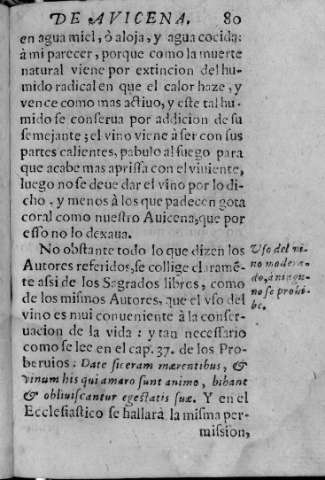 DE AVICENA. 80
en agua miel, ò aloja, y agua cocida:
à mi parecer, porque como la muerte
natural viene por extincion del hu-
mido radical en que el calor haze, y
vence como mas actiuo, y este tal hu-
mido se conserua por addicion de su
semejante; el vino viene à ser con sus
partes calientes, pabulo al fuego para
que acabe mas aprissa con el viuiente,
luego no se deue dar el vino por lo di-
cho, y menos à los que padecen gota
coral como nuestro Auicena, que por
esso no lo dexaua.
No obstante todo lo que dizen los
Autores referidos, se collige claramẽ-
te assi de los Sagrados libres, como
de los mismos Autores, que el vso del
vino es mui conueniente à la conser-
uacion de la vida: y tan necessario
como se lee en el cap. 37. de los Pro-
beruios: Date siceram mærentibus, &
vinum his qui amaro sunt animo, bibant
& obliuiscantur egestatis suæ. Y en el
Ecclesiastico se hallarà la misma per-
mission,
Vso del vi-
no modera-
do, à ningu-
no se prohi-
be.